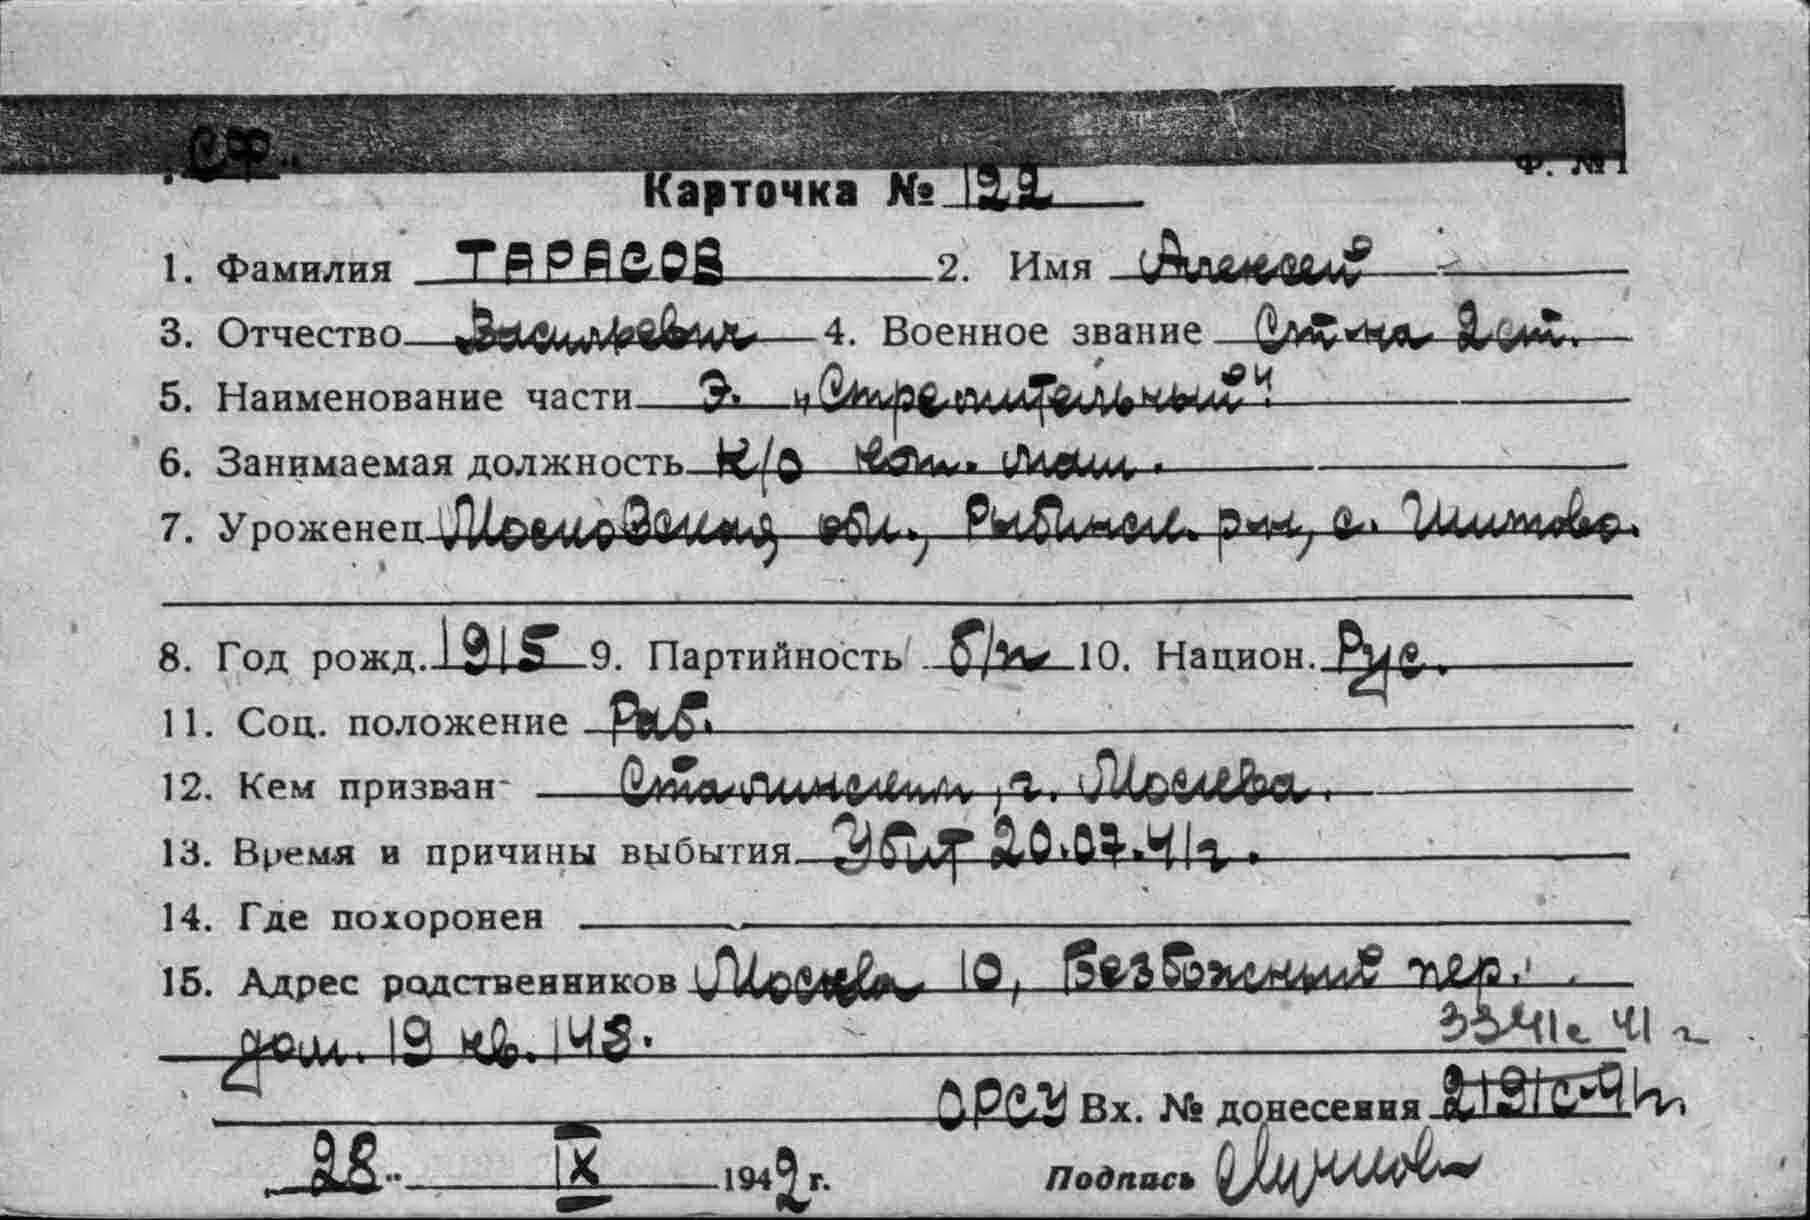 СФ
Ф. №1
Карточка № 122
1. Фамилия ТАРАСОВ 2. Имя Алексей
3. Отчество Васильевич 4. Военное звание Ст-на 2 ст.
5. Наименование части Э. „Стремительный"
6. Занимаемая должность К/о кот. маш.
7. Уроженец Московская обл., Рыбинск. р-н, с. Шитово.
8. Год рожд. 1915 9. Партийность б/п 10. Национ. Рус.
11. Соц. положение Раб.
12. Кем призван Сталинским, г. Москва.
13. Время и причины выбытия Убит 20.07.41г.
14. Где похоронен
15. Адрес родственников Москва 10, Безбожный пер.
дом. 19 кв. 148.
3341с 41 г
ОРСУ Вх. № донесения 2191с-41г.
28 IX 1942 г. Подпись